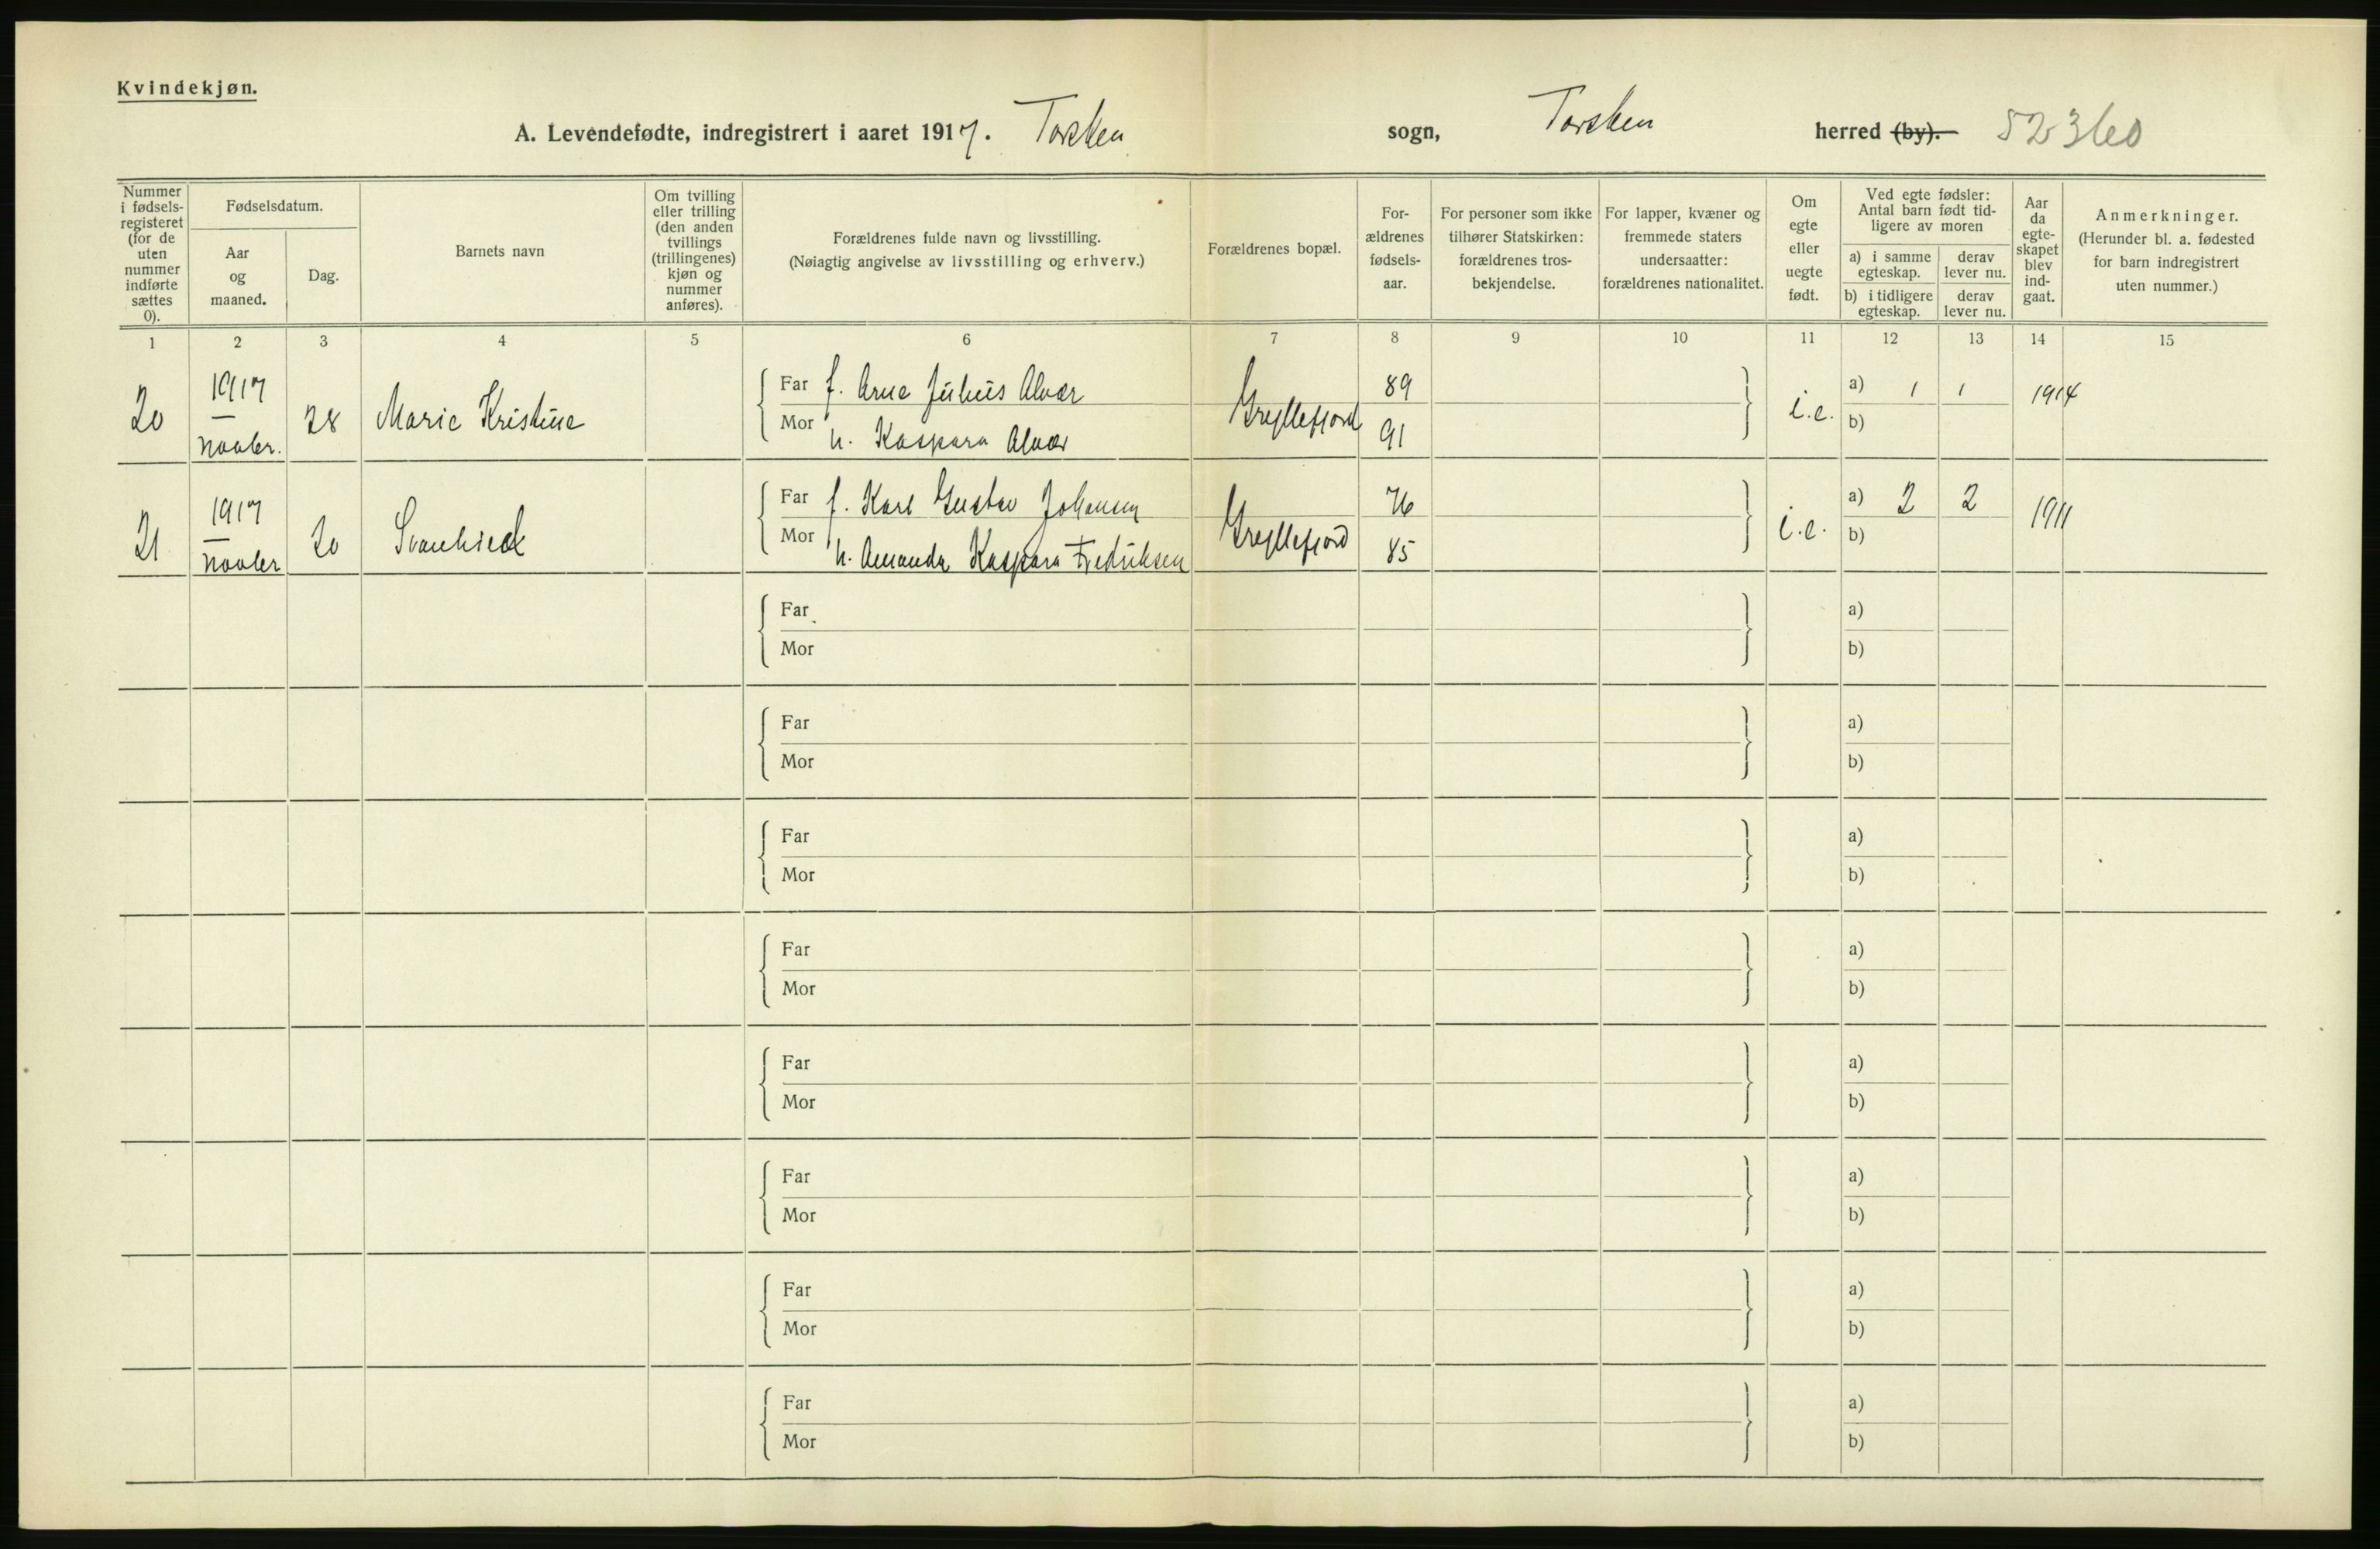 Kvindekjøn.
A. Levendefødte, indregistrert i aaret 1917. Torsken sogn, Torsken herred (by). 52360
Nummer i fødsels-registeret (for de uten nummer indførte sættes 0).
Fødselsdatum.
Aar og maaned.
Dag.
Barnets navn
Om tvilling eller trilling (den anden tvillings (trillingenes) kjøn og nummer anføres).
Forældrenes fulde navn og livsstilling.
(Nøiagtig angivelse av livsstilling og erhverv.)
Forældrenes bopæl.
For-ældrenes fødsels-aar.
For personer som ikke tilhører Statskirken: forældrenes tros-bekjendelse.
For lapper, kvæner og fremmede staters undersaatter: forældrenes nationalitet.
Om egte eller uegte født.
Ved egte fødsler: Antal barn født tid-ligere av moren
a) i samme egteskap. derav lever nu.
b) i tidligere egteskap. derav lever nu.
Aar da egte-skapet blev ind-gaat.
Anmerkninger.
(Herunder bl. a. fødested for barn indregistrert uten nummer.)
1 2 3 4 5 6 7 8 9 10 11 12 13 14 15
20 1917 novbr. 28 Marie Kristine
Far f. Arne Julius Alvær 89 a) 1 1 1914
Mor h. Kaspara Alvær Gryllefjord 91 i.e. b)
21 1917 novbr 20 Svanhied
Far f. Karl Gustav Johansen 76 a) 2 2 1911
Mor h. Amanda Kaspara Fredriksen Gryllefjord 85 i.e. b)
Far a)
Mor b)
Far a)
Mor b)
Far a)
Mor b)
Far a)
Mor b)
Far a)
Mor b)
Far a)
Mor b)
Far a)
Mor b)
Far a)
Mor b)